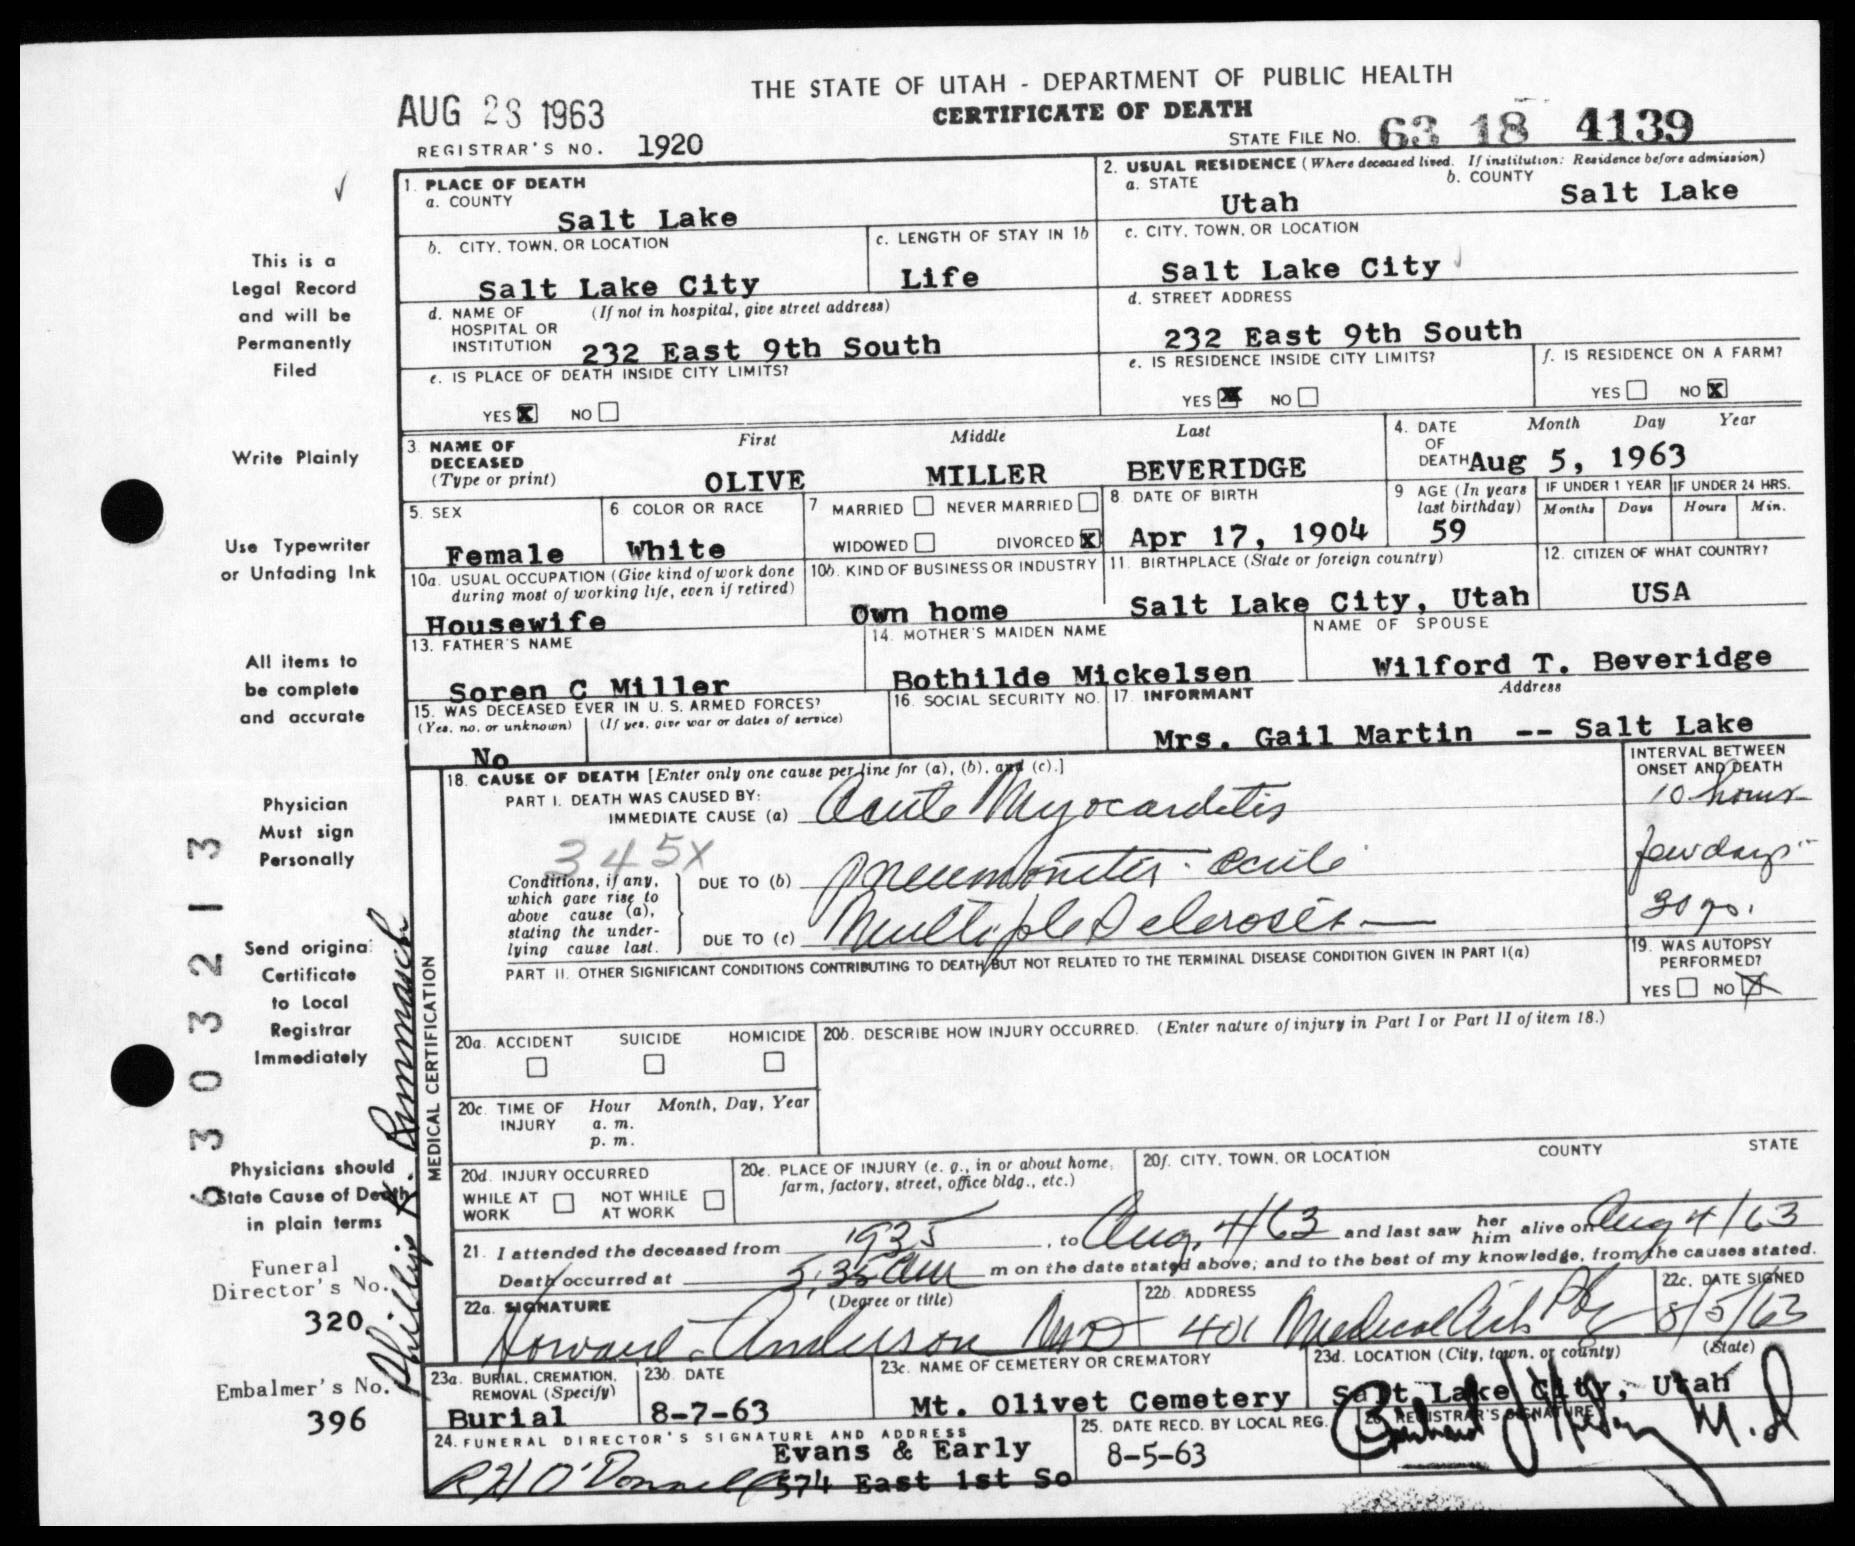 THE STATE OF UTAH - DEPARTMENT OF PUBLIC HEALTH
AUG 23 1963
CERTIFICATE OF DEATH
REGISTRAR'S NO. 1920
STATE FILE NO. 63 18 4139
1. PLACE OF DEATH
a. COUNTY
Salt Lake
2. USUAL RESIDENCE (Where deceased lived. If institution: Residence before admission)
a. STATE
Utah
b. COUNTY
Salt Lake
b. CITY, TOWN, OR LOCATION
Salt Lake City
c. LENGTH OF STAY IN 1b
Life
c. CITY, TOWN, OR LOCATION
Salt Lake City
d. NAME OF HOSPITAL OR INSTITUTION (If not in hospital, give street address)
232 East 9th South
d. STREET ADDRESS
232 East 9th South
e. IS PLACE OF DEATH INSIDE CITY LIMITS?
YES X NO
e. IS RESIDENCE INSIDE CITY LIMITS?
YES X NO
f. IS RESIDENCE ON A FARM?
YES NO X
3. NAME OF DECEASED (Type or print)
First Middle Last
OLIVE MILLER BEVERIDGE
4. DATE OF DEATH
Month Day Year
Aug 5, 1963
5. SEX
Female
6 COLOR OR RACE
White
7 MARRIED NEVER MARRIED
WIDOWED DIVORCED X
8. DATE OF BIRTH
Apr 17, 1904
9 AGE (In years last birthday)
59
IF UNDER 1 YEAR
Months Days
IF UNDER 24 HRS.
Hours Min.
10a. USUAL OCCUPATION (Give kind of work done during most of working life, even if retired)
Housewife
10b. KIND OF BUSINESS OR INDUSTRY
Own home
11. BIRTHPLACE (State or foreign country)
Salt Lake City, Utah
12. CITIZEN OF WHAT COUNTRY?
USA
13. FATHER'S NAME
Soren C Miller
14. MOTHER'S MAIDEN NAME
Bothilde Mickelsen
NAME OF SPOUSE
Wilford T. Beveridge
15. WAS DECEASED EVER IN U. S. ARMED FORCES?
(Yes, no, or unknown) (If yes, give war or dates of service)
No
16. SOCIAL SECURITY NO.
17. INFORMANT Address
Mrs. Gail Martin -- Salt Lake
18. CAUSE OF DEATH [Enter only one cause per line for (a), (b), and (c).]
INTERVAL BETWEEN ONSET AND DEATH
PART I. DEATH WAS CAUSED BY:
IMMEDIATE CAUSE (a) Acute Myocarditis 10 hours
345x
Conditions, if any, which gave rise to above cause (a), stating the underlying cause last.
DUE TO (b) Pneumonitis - acute few days
DUE TO (c) Multiple Sclerosis 30 yrs.
PART II. OTHER SIGNIFICANT CONDITIONS CONTRIBUTING TO DEATH BUT NOT RELATED TO THE TERMINAL DISEASE CONDITION GIVEN IN PART I(a)
19. WAS AUTOPSY PERFORMED?
YES NO X
20a. ACCIDENT SUICIDE HOMICIDE
20b. DESCRIBE HOW INJURY OCCURRED. (Enter nature of injury in Part I or Part II of item 18.)
20c. TIME OF INJURY
Hour Month, Day, Year
a. m.
p. m.
20d. INJURY OCCURRED
WHILE AT WORK NOT WHILE AT WORK
20e. PLACE OF INJURY (e. g., in or about home, farm, factory, street, office bldg., etc.)
20f. CITY, TOWN, OR LOCATION COUNTY STATE
21. I attended the deceased from 1935, to Aug. 4/63 and last saw her him alive on Aug 4/63
Death occurred at 5:35 am m on the date stated above; and to the best of my knowledge, from the causes stated.
22a. SIGNATURE (Degree or title)
Howard Anderson MD
22b. ADDRESS
401 Medical Arts Bldg
22c. DATE SIGNED
8/5/63
23a. BURIAL, CREMATION, REMOVAL (Specify)
Burial
23b. DATE
8-7-63
23c. NAME OF CEMETERY OR CREMATORY
Mt. Olivet Cemetery
23d. LOCATION (City, town, or county) (State)
Salt Lake City, Utah
24. FUNERAL DIRECTOR'S SIGNATURE AND ADDRESS
Evans & Early
R H O'Donnell 574 East 1st So
25. DATE RECD. BY LOCAL REG.
8-5-63
26. REGISTRAR'S SIGNATURE
M.D
MEDICAL CERTIFICATION
This is a
Legal Record
and will be
Permanently
Filed
Write Plainly
Use Typewriter
or Unfading Ink
All items to
be complete
and accurate
Physician
Must sign
Personally
Send original
Certificate
to Local
Registrar
Immediately
Physicians should
State Cause of Death
in plain terms
Funeral
Director's No.
320
Embalmer's No.
396
6 3 0 3 2 1 3
Philip K.